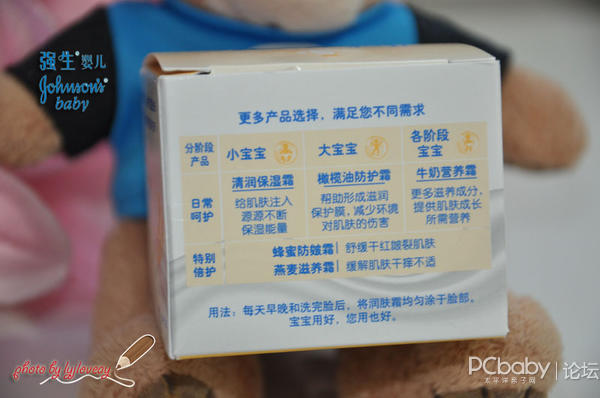 强生®婴儿
Johnson's®
baby
更多产品选择，满足您不同需求
分阶段
产品
小宝宝
大宝宝
各阶段
宝宝
日常
呵护
清润保湿霜
给肌肤注入
源源不断
保湿能量
橄榄油防护霜
帮助形成滋润
保护膜，减少环境
对肌肤的伤害
牛奶营养霜
更多滋养成分，
提供肌肤成长
所需营养
特别
倍护
蜂蜜防皴霜 | 舒缓干红皴裂肌肤
燕麦滋养霜 | 缓解肌肤干痒不适
用法：每天早晚和洗完脸后，将润肤霜均匀涂于脸部。
宝宝用好，您用也好。
photo by lyloveay
PCbaby | 论坛
太平洋亲子网